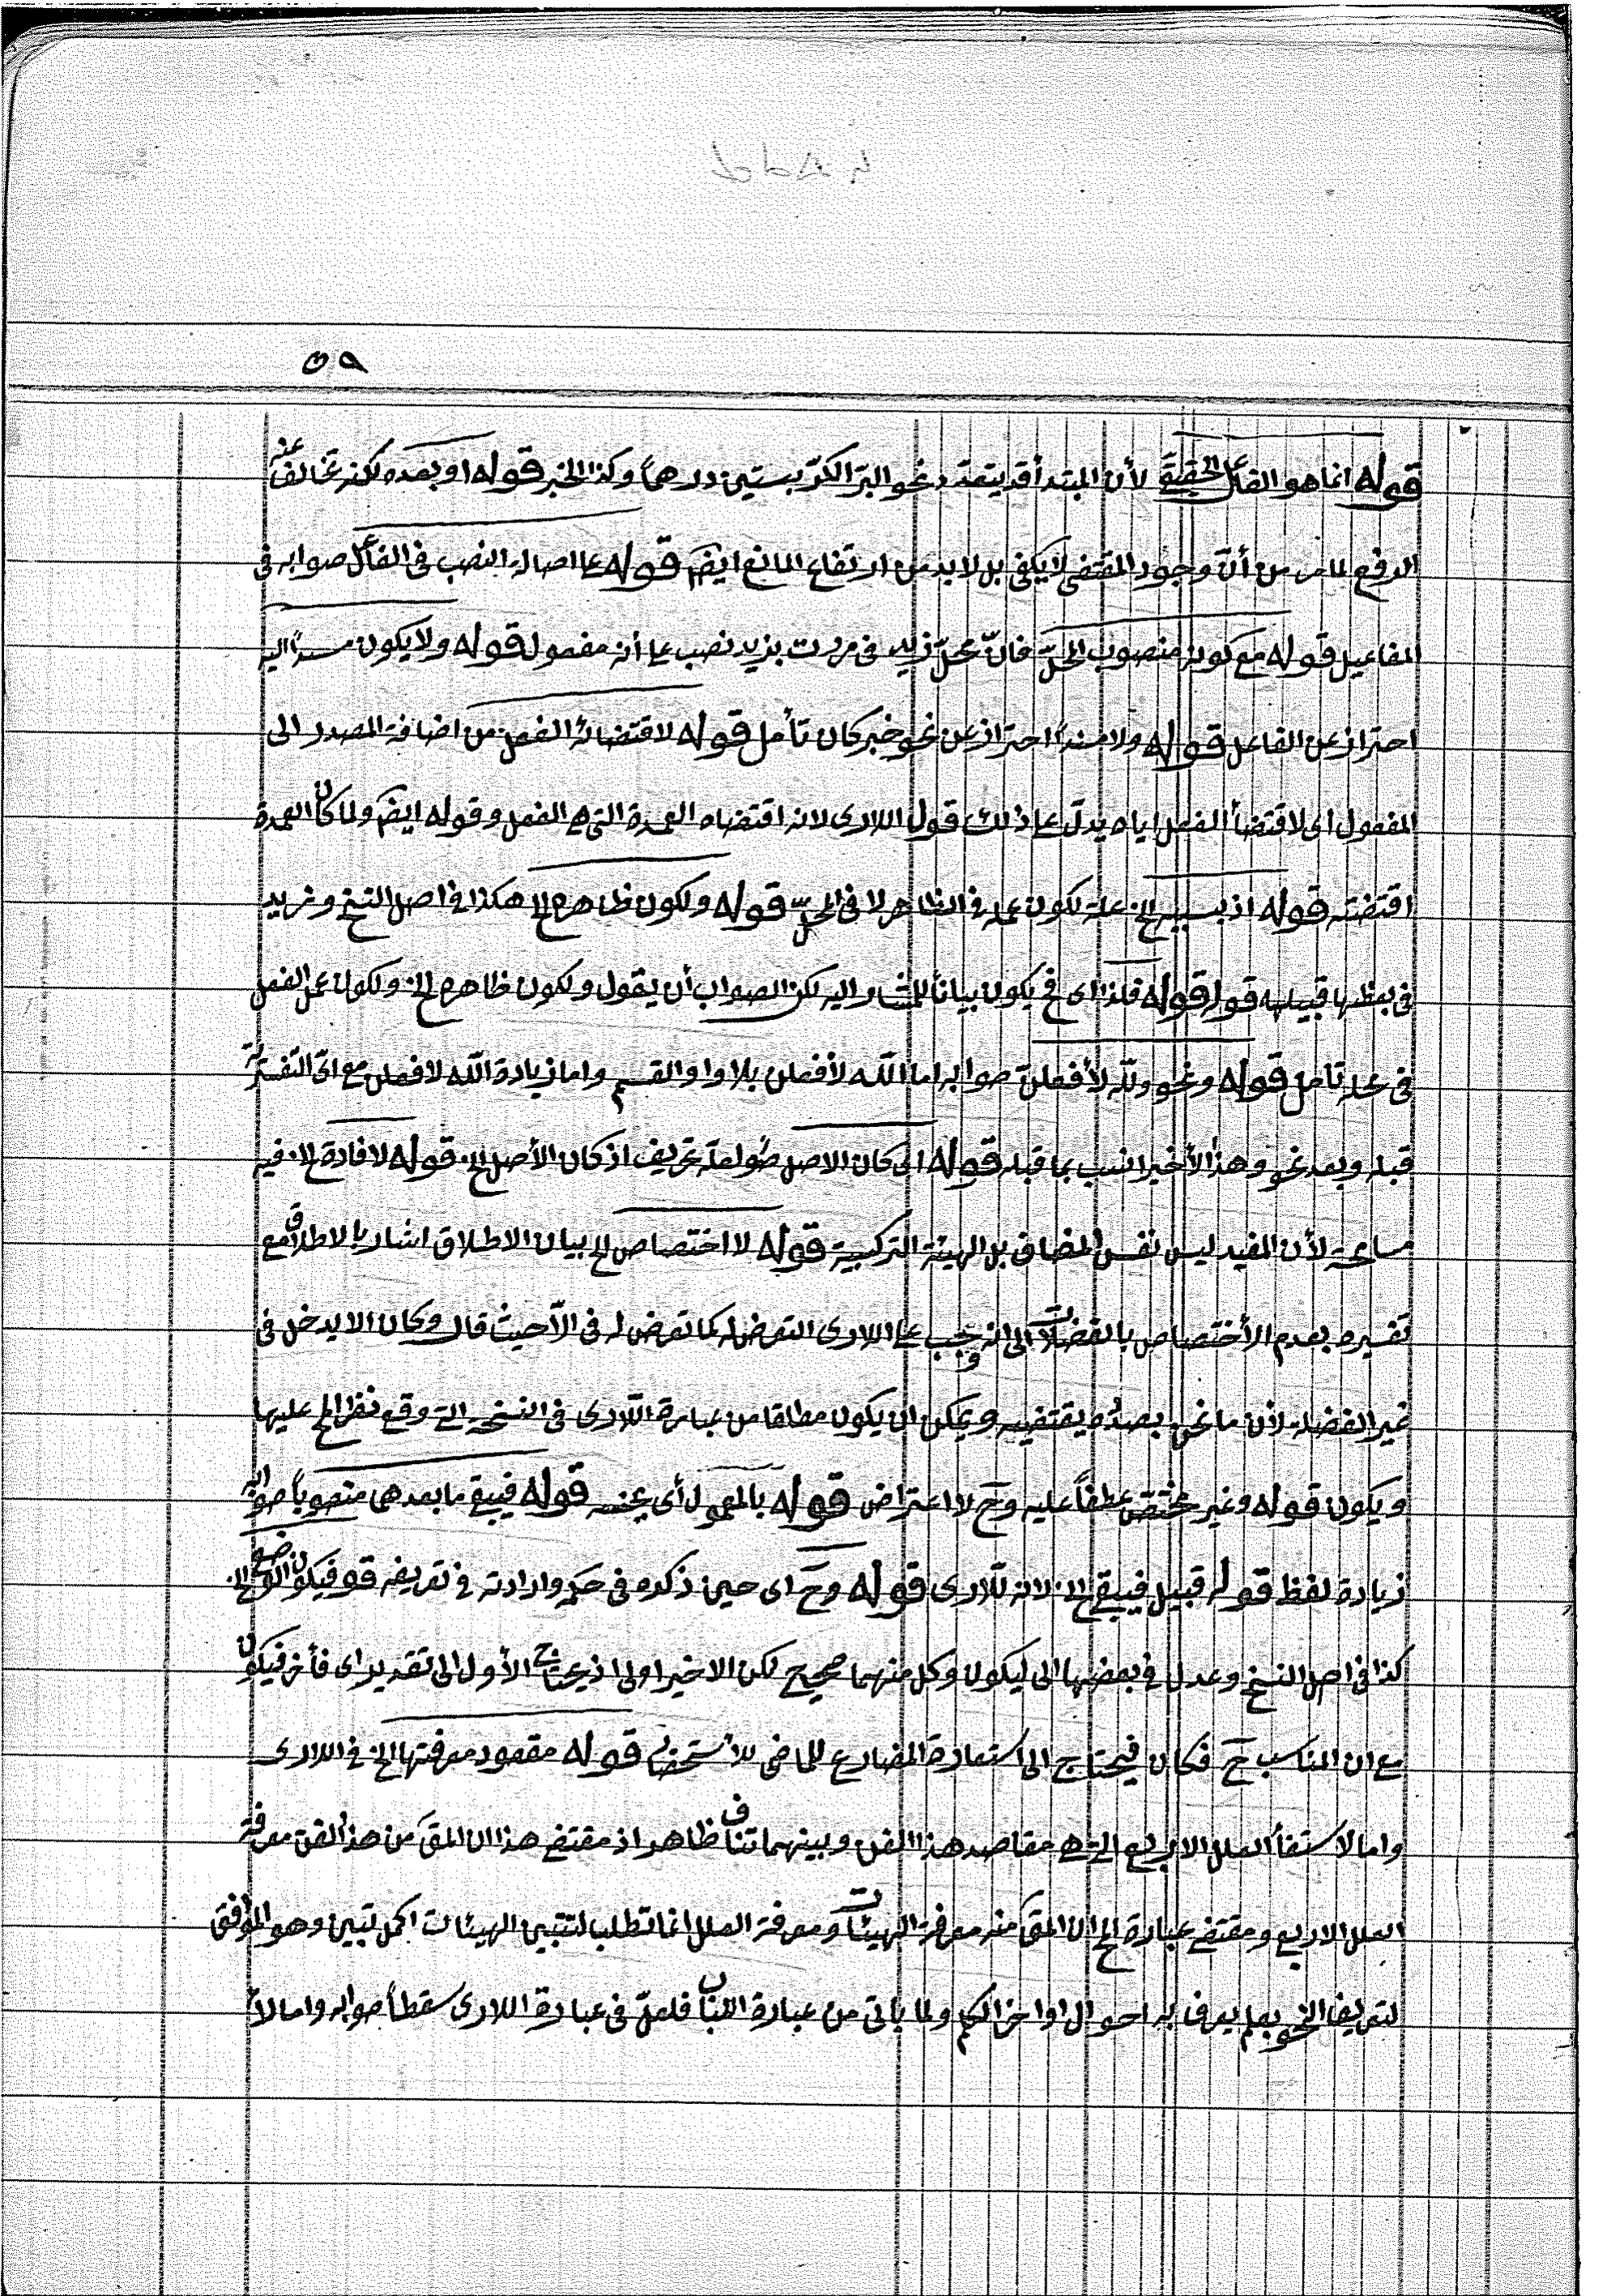 ٥٩
قوله انما هو الفاعل الحقيقي لأن المبتدأ قد يتعدد نحو البر الكرّ بستين درهماً وكذا الخبر قوله او بعده لكنه تخالف عنه
الرفع لمامر من أنّ وجود المقتضى لا يكفى بل لابد من ارتفاع المانع ايضَ قوله عا اصالة النصب فى الفاعل صوابه فى
المفاعيل قوله مع كونه منصوب المحلّ فانّ محلّ زيد فى مررت بزيد نصب عا أنه مفعول قوله ولا يكون مسنداً اليه
احتراز عن الفاعل قوله ولا مسنداً احتراز عن نحو خبر كان تأمل قوله لاقتضائه الفعل من اضافة المصدر الى
المفعول اى لاقتضأ الفعل اياه يدلّ عا ذلك قول اللارى لانه اقتضاه العمدة التى هى الفعل وقوله ايضَ ولما كان العمدة
اقتضته قوله اذ بسببه الخ علة لكون عمله فى الظاهر لا فى المحلّ قوله ولكون ظاهره الخ هكذا فى اصل النسخ و زيد
فى بعظها قبيله قوله قوله فلذا اى فح يكون بياناً للمشار اليه لكن الصواب أن يقول ولكون ظاهره الخ ولكون عمل الفعل
فى محله تأمل قوله ونحو ولله لأفعلنّ صوابه اما الله لأفعلن بلا واو القسم واما زيادة الله لافعلن مع اىّ التفسيرية
قبله وبعد نحو وهذا الأخير انسب بما قبله قوله اى كان الاصل ولعله تحريف اذ كان الأصل الخ قوله لافادة الخ فيه
مسامحة لأن المفيد ليس نفس المضاف بل الهيئة التركيبية قوله لا اختصاص الخ بيان الاطلاق اشار بالاطلاق مع
تفسيره بعدم الأختصاص بالفضلات الى انه وجب عا اللارى التعرض له كما تعرض له فى الآ حيث قال وكان الا يدخل فى
غير الفضلة لأن ما نحن بصدده يقتضيه ويمكن ان يكون مطلقا من عبارة اللارى فى النسخة التى وقع نظر المح عليها
ويكون قوله وغير مختصّ عطفاً عليه وحَ لا اعتراض قوله بالمعمول أى يخصه قوله فيبقى ما بعدهى منصوباً صوابه
زيادة لفظ قوله قبيل فيبقى الخ لانه للارى قوله وحَ اى حين ذكره فى حكم وارادته فى تعريفه قو فيكون الوضع الخ
كذا فى اصل النسخ وعدل فى بعضها الى ليكون وكل منهما صحيح لكن الاخير اولى اذ يحتاج الأول الى تقدير اى فأخر فيكون
مع ان المناسب حَ فكان فيحتاج الى استعارة المضارع للماضى للاستحضار قوله مقصود معرفتها الخ فى اللارى
واما لاستفأ العلل الاربع التى هى مقاصد هذا الفن وبينهما تناف ظاهر اذ مقتضى هذا ان المقَ من هذا الفن معرفة
العلل الاربع ومقتضى عبارة المح ان المقَ منه معرفة الهيئات ومعرفة العلل انما تطلب لتتبين الهيئات اكمل تبيين وهو الموفق
لتعريف النحو بعلم يعرف به احوال اواخر الكلم ولما يأتى من عبارة اللباب فلعلّ فى عبارة اللارى سقطاً صوابه واما لأ